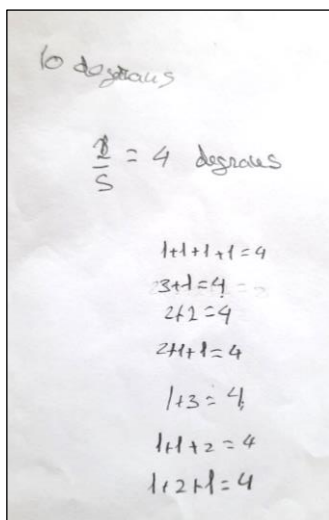 10 degraus
2/5 = 4 degraus
1+1+1+1=4
3+1=4
2+2=4
2+1+1=4
1+3=4
1+1+2=4
1+2+1=4